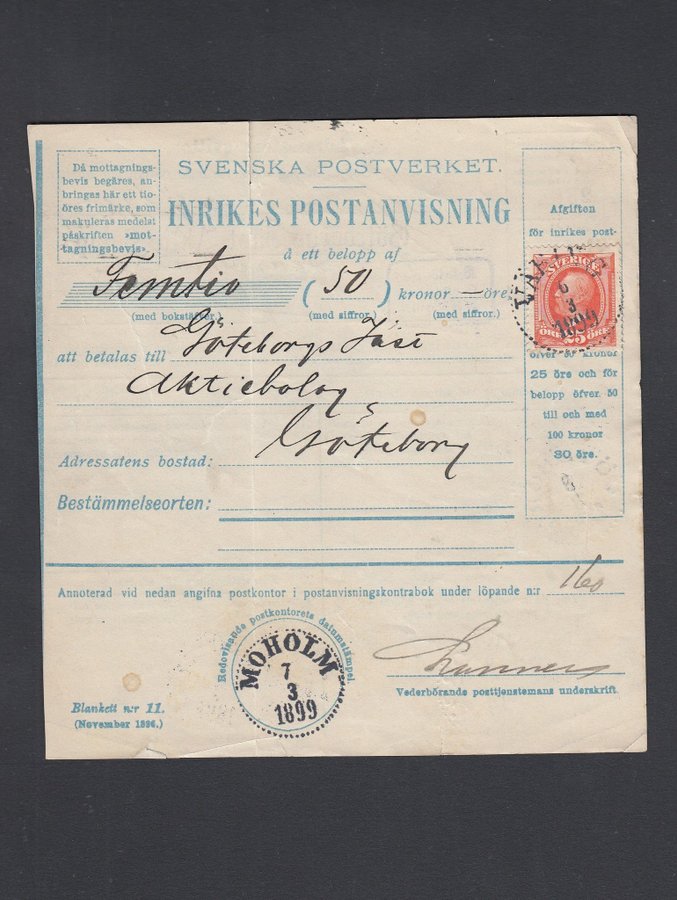 Då mottagnings-
bevis begäres, an-
bringas här ett tio-
öres frimärke, som
makuleras medelst
påskriften »mot-
tagningsbevis».
SVENSKA POSTVERKET.
INRIKES POSTANVISNING
å ett belopp af
Femtio (50) kronor — öre
(med bokstäfver.) (med siffror.) (med siffror.)
att betalas till Göteborgs Jäst
Aktiebolag
Göteborg
Adressatens bostad:
Bestämmelseorten:
Afgiften
för inrikes post-
SVERIGE
ÖRE 25 ÖRE
6
3
1899
öfver 50 kronor
25 öre och för
belopp öfver. 50
till och med
100 kronor
30 öre.
Annoterad vid nedan angifna postkontor i postanvisningskontrabok under löpande n:r 160
Redovisande postkontorets datumstämpel
MOHOLM
7
3
1899
Vederbörande posttjenstemans underskrift.
Blankett n:r 11.
(November 1896.)